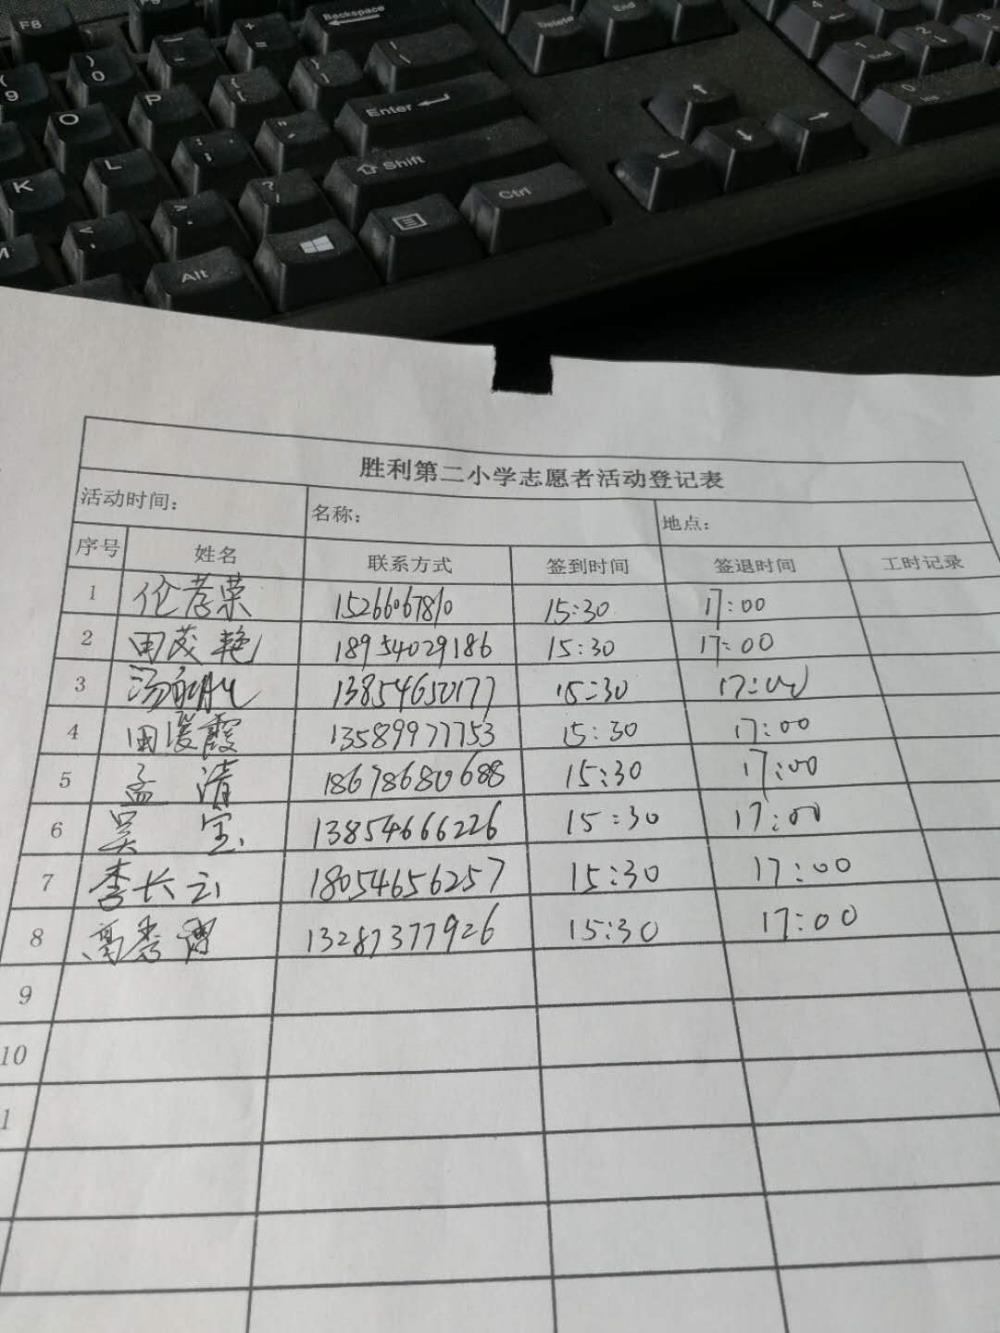 F8 F9 Backspace Delete End
9 ) 0 _ - + = | \ 4 ← 1 End 2 ↓ 3
O P { [ } ] Enter 0 Ins
K L : ; " ' Shift ↑
M < , > . ? / Ctrl ← ↓ →
Alt
胜利第二小学志愿者活动登记表
活动时间: 名称: 地点:
序号 姓名 联系方式 签到时间 签退时间 工时记录
1 伦孝荣 15:30 17:00
2 田茂艳 18954029186 15:30 17:00
3 汤 13854650177 15:30 17:00
4 田 霞 13589977753 15:30 17:00
5 孟 清 18678680688 15:30 17:00
6 吴 宝 13854666226 15:30 17:00
7 李长云 18054656257 15:30 17:00
8 高秀 13287377926 15:30 17:00
9
10
1